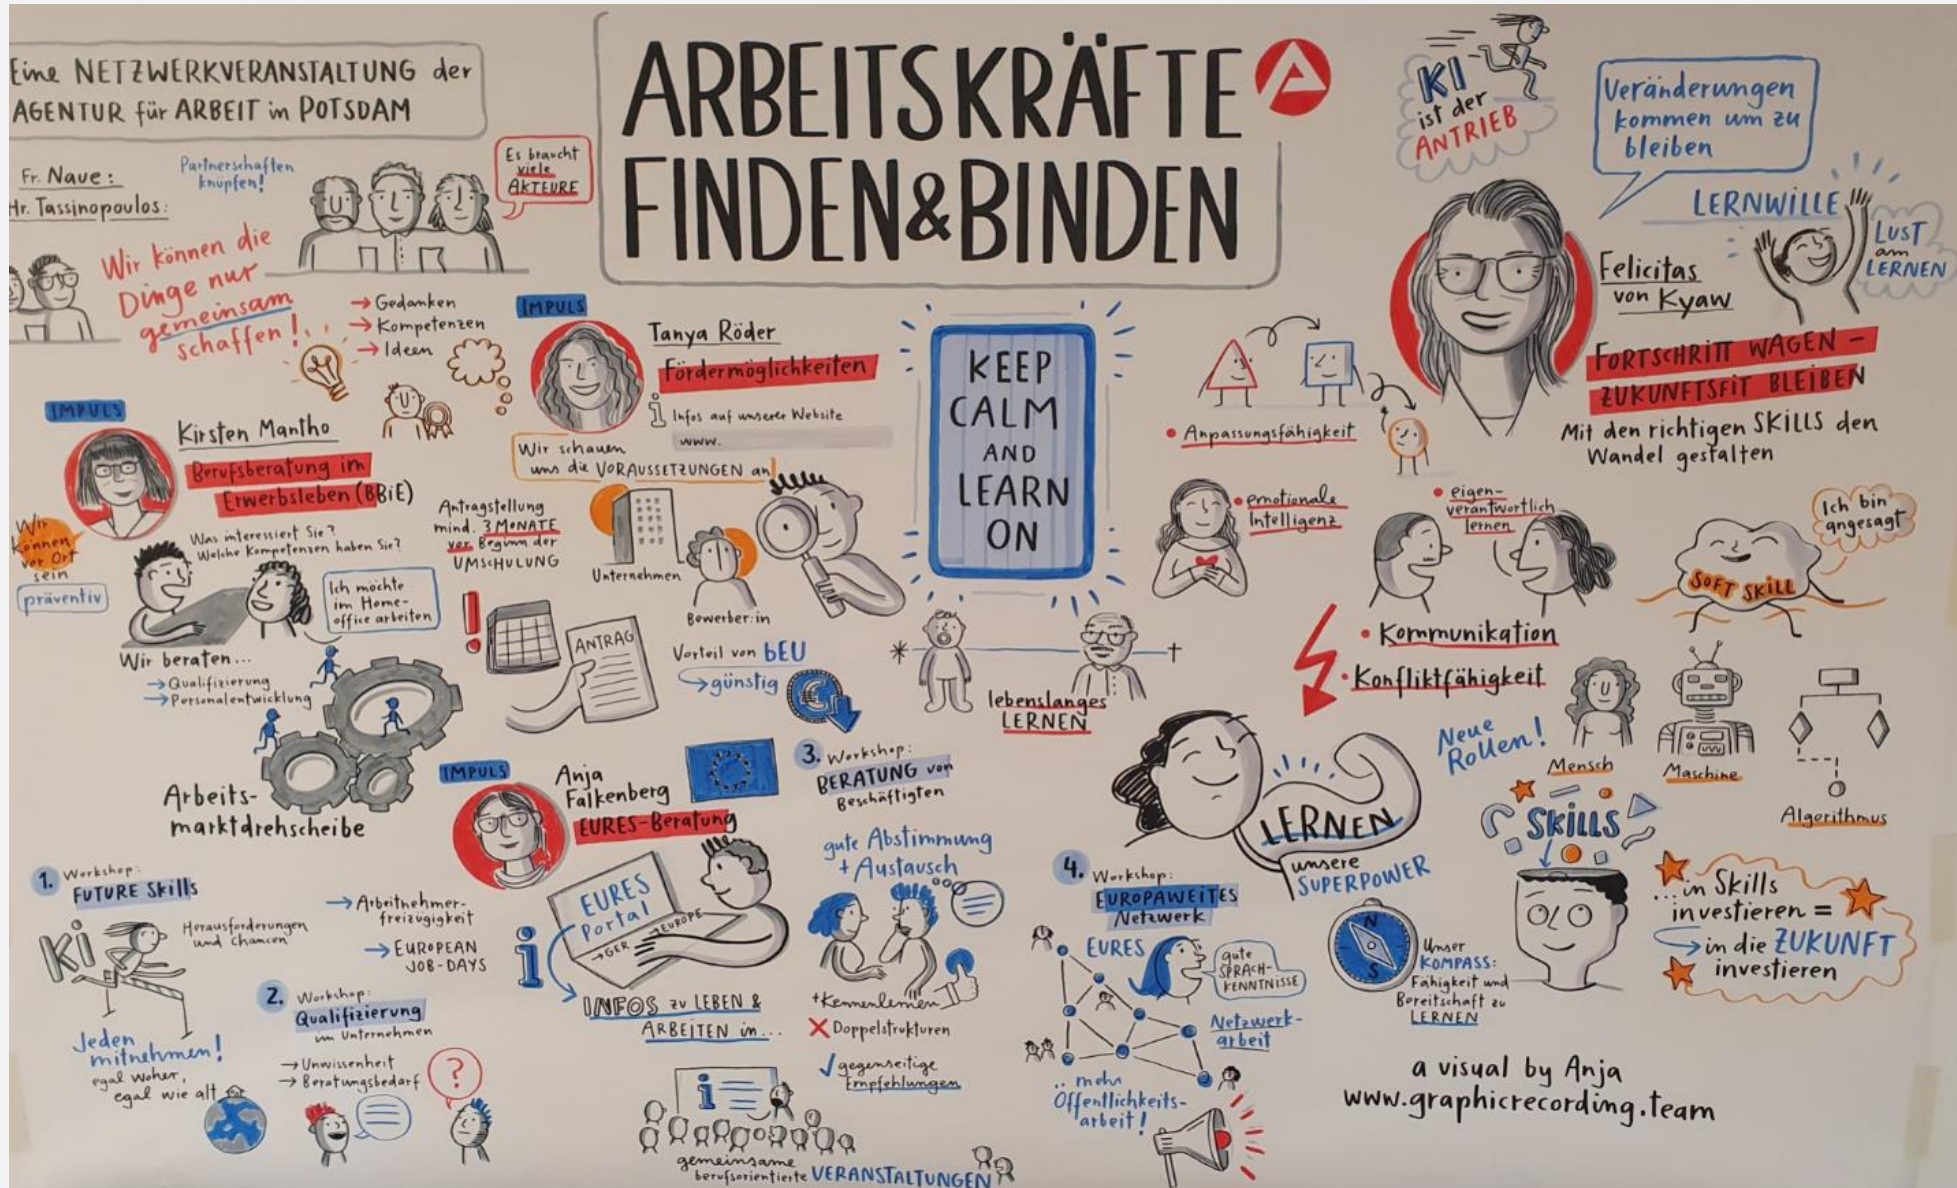 Eine NETZWERKVERANSTALTUNG der
AGENTUR für ARBEIT in POTSDAM
ARBEITSKRÄFTE
FINDEN & BINDEN
Fr. Naue:
Hr. Tassinopoulos:
Partnerschaften
knüpfen!
Es braucht
viele
AKTEURE
Wir können die
Dinge nur
gemeinsam
schaffen!
→ Gedanken
→ Kompetenzen
→ Ideen
IMPULS
Kirsten Mantho
Berufsberatung im
Erwerbsleben (BBiE)
Wir
können
vor Ort
sein
präventiv
Was interessiert Sie?
Welche Kompetenzen haben Sie?
Ich möchte
im Home-
office arbeiten
Wir beraten...
→ Qualifizierung
→ Personalentwicklung
Arbeits-
marktdrehscheibe
IMPULS
Tanya Röder
Fördermöglichkeiten
i Infos auf unserer Website
www.
Wir schauen
uns die VORAUSSETZUNGEN an
Antragstellung
mind. 3 MONATE
vor Beginn der
UMSCHULUNG
Unternehmen
Bewerber:in
!
ANTRAG
Vorteil von bEU
günstig
€
IMPULS
Anja
Falkenberg
EURES-Beratung
→ Arbeitnehmer-
freizügigkeit
→ EUROPEAN
JOB-DAYS
EURES
Portal
→ GER
→ EUROPE
i
INFOS zu LEBEN &
ARBEITEN in...
i
gemeinsame
berufsorientierte VERANSTALTUNGEN
1. Workshop:
FUTURE Skills
KI
Herausforderungen
und Chancen
Jeden
mitnehmen!
egal woher,
egal wie alt
2. Workshop:
Qualifizierung
im Unternehmen
→ Unwissenheit
→ Beratungsbedarf
?
3. Workshop:
BERATUNG von
Beschäftigten
gute Abstimmung
+ Austausch
+ Kennenlernen
X Doppelstrukturen
✓ gegenseitige
Empfehlungen
4. Workshop:
EUROPAWEITES
Netzwerk
EURES
gute
SPRACH-
KENNTNISSE
Netzwerk-
arbeit
.. mehr
Öffentlichkeits-
arbeit!
KEEP
CALM
AND
LEARN
ON
* †
lebenslanges
LERNEN
KI
ist der
ANTRIEB
Veränderungen
kommen um zu
bleiben
LERNWILLE
LUST
am
LERNEN
Felicitas
von Kyaw
FORTSCHRITT WAGEN –
ZUKUNFTSFIT BLEIBEN
Mit den richtigen SKILLS den
Wandel gestalten
• Anpassungsfähigkeit
• emotionale
Intelligenz
• eigen-
verantwortlich
lernen
Ich bin
angesagt
SOFT SKILL
• Kommunikation
• Konfliktfähigkeit
Neue
Rollen!
Mensch
Maschine
Algorithmus
LERNEN
unsere
SUPERPOWER
N
S
Unser
KOMPASS:
Fähigkeit und
Bereitschaft zu
LERNEN
SKILLS
... in Skills
investieren =
→ in die ZUKUNFT
investieren
a visual by Anja
www.graphicrecording.team